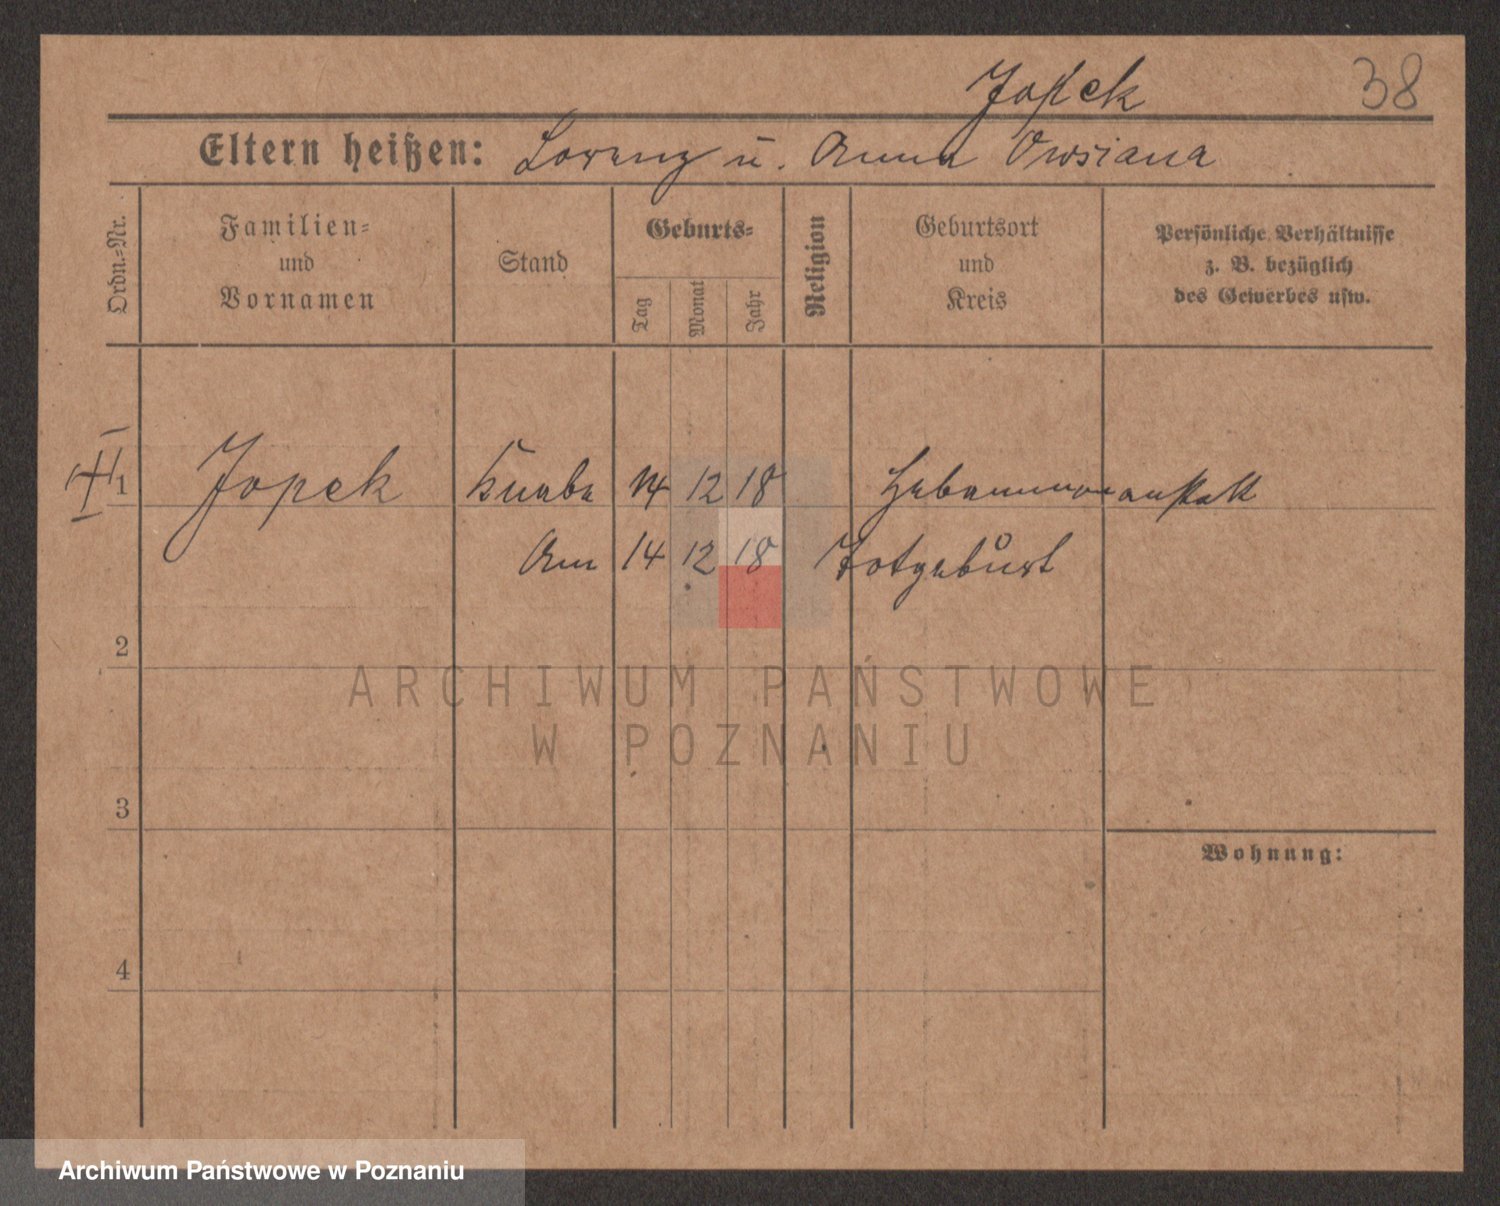 Jopek 38
Eltern heißen: Lorenz u. Anna Owsiana
Ordn.-Nr.
Familien-
und
Vornamen
Stand
Geburts-
Tag
Monat
Jahr
Religion
Geburtsort
und
Kreis
Persönliche Verhältnisse
z. B. bezüglich
des Gewerbes usw.
1 Jopek Knabe 14 12 18 Hebammenanstalt
Am 14 12 18 Totgeburt
2
ARCHIWUM PAŃSTWOWE
W POZNANIU
3
Wohnung:
4
Archiwum Państwowe w Poznaniu